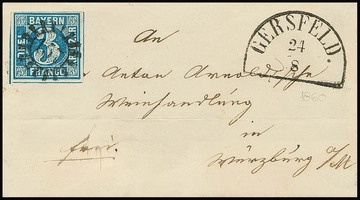 BAYERN
3
FRANCO
GERSFELD.
24
8
An
Anton Arnold'sche
Weinhandlung
in
frei.
Würzburg a/M
1860